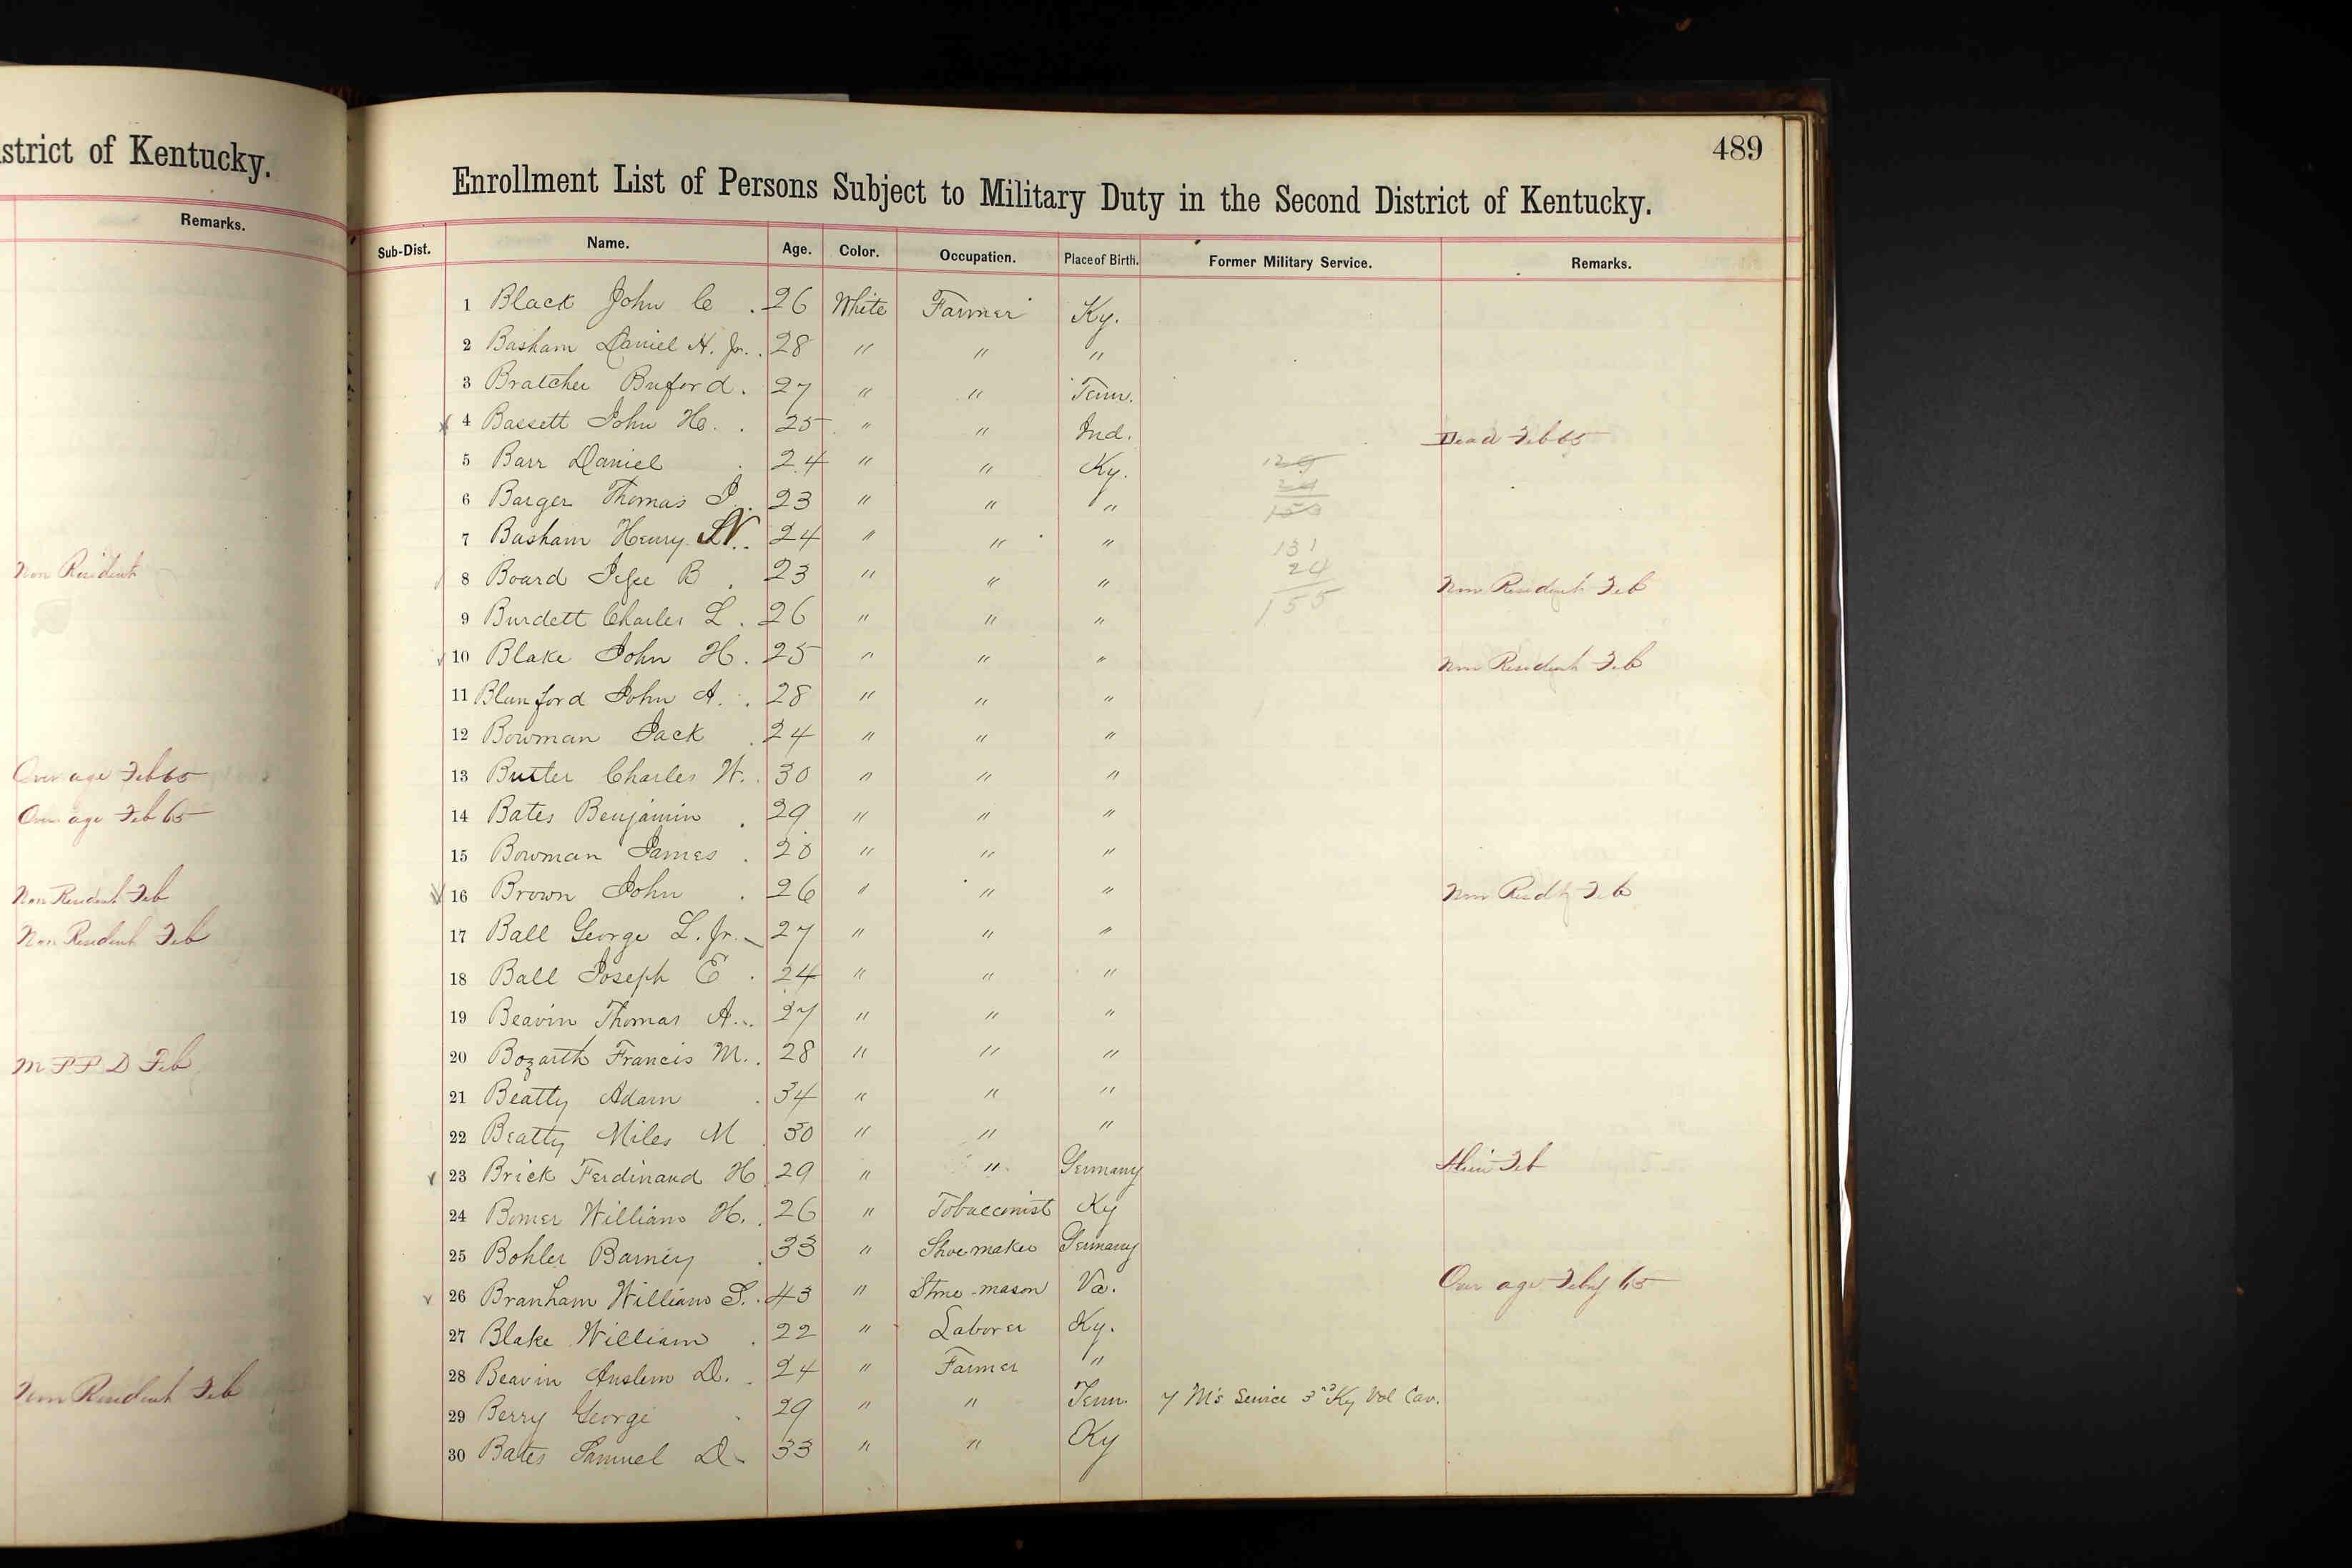 strict of Kentucky.
Remarks.
Non Resident
Over age Feb 65
Over age Feb 65
Non Resident Feb
Non Resident Feb
M F F D Feb
Non Resident Feb
489
Enrollment List of Persons Subject to Military Duty in the Second District of Kentucky.
Sub-Dist. Name. Age. Color. Occupation. Place of Birth. Former Military Service. Remarks.
1 Black John C 26 White Farmer Ky.
2 Basham Daniel H. Jr. 28 " " "
3 Bratcher Buford. 27 " " Tenn.
4 Bassett John H. 25 " " Ind. Dead Feb 65
5 Barr Daniel 24 " " Ky.
6 Barger Thomas J. 23 " " "
7 Basham Henry N. 24 " " " 131
8 Board B 23 " " " 24 Non Resident Feb
9 Burdett Charles L. 26 " " " 155
10 Blake John H. 25 " " " Non Resident Feb
11 Blanford John A. 28 " " "
12 Bowman Jack 24 " " "
13 Butler Charles W. 30 " " "
14 Bates Benjamin 29 " " "
15 Bowman James 20 " " "
16 Brown John 26 " " " Non Resdt Feb
17 Ball George L. Jr. 27 " " "
18 Ball Joseph E 24 " " "
19 Beavin Thomas A. 27 " " "
20 Bozarth Francis M. 28 " " "
21 Beatty Adam 34 " " "
22 Beatty Miles M 30 " " "
23 Brick Ferdinand H 29 " " Germany Alien Feb
24 Bomer William H. 26 " Tobacconist Ky
25 Bohler Barney 33 " Shoemaker Germany
26 Branham William S. 43 " Stone-mason Va. Over age Feby 65
27 Blake William 22 " Laborer Ky.
28 Beavin Anslem D. 24 " Farmer "
29 Berry George 29 " " Tenn. 7 M's Service 3rd Ky Vol Cav.
30 Bates Samuel D 33 " " Ky